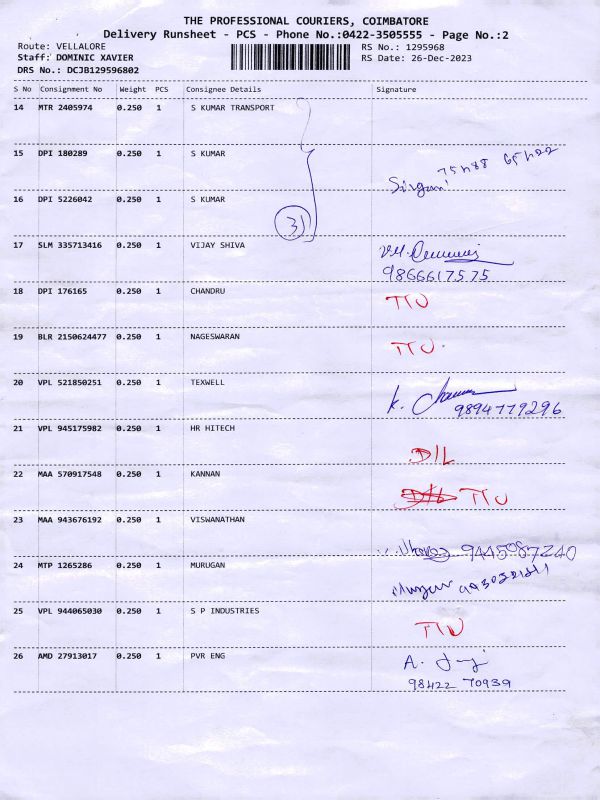 THE PROFESSIONAL COURIERS, COIMBATORE
Delivery Runsheet - PCS - Phone No.:0422-3505555 - Page No.:2
Route: VELLALORE RS No.: 1295968
Staff: DOMINIC XAVIER RS Date: 26-Dec-2023
DRS No.: DCJB129596802
S No Consignment No Weight PCS Consignee Details Signature
14 MTR 2405974 0.250 1 S KUMAR TRANSPORT
15 DPI 180289 0.250 1 S KUMAR
16 DPI 5226042 0.250 1 S KUMAR
3
17 SLM 335713416 0.250 1 VIJAY SHIVA
9866617575
18 DPI 176165 0.250 1 CHANDRU
TTU
19 BLR 2150624477 0.250 1 NAGESWARAN
TTU
20 VPL 521850251 0.250 1 TEXWELL
K.
9894779296
21 VPL 945175982 0.250 1 HR HITECH
D/L
22 MAA 570917548 0.250 1 KANNAN
TTU
23 MAA 943676192 0.250 1 VISWANATHAN
9445087240
24 MTP 1265286 0.250 1 MURUGAN
25 VPL 944065030 0.250 1 S P INDUSTRIES
TTU
26 AMD 27913017 0.250 1 PVR ENG
A.
98422 70939